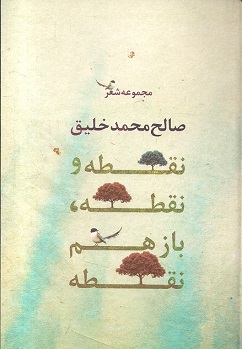 مجموعه شعر
صالح محمد خلیق
نقطه و
نقطه،
باز هم
نقطه